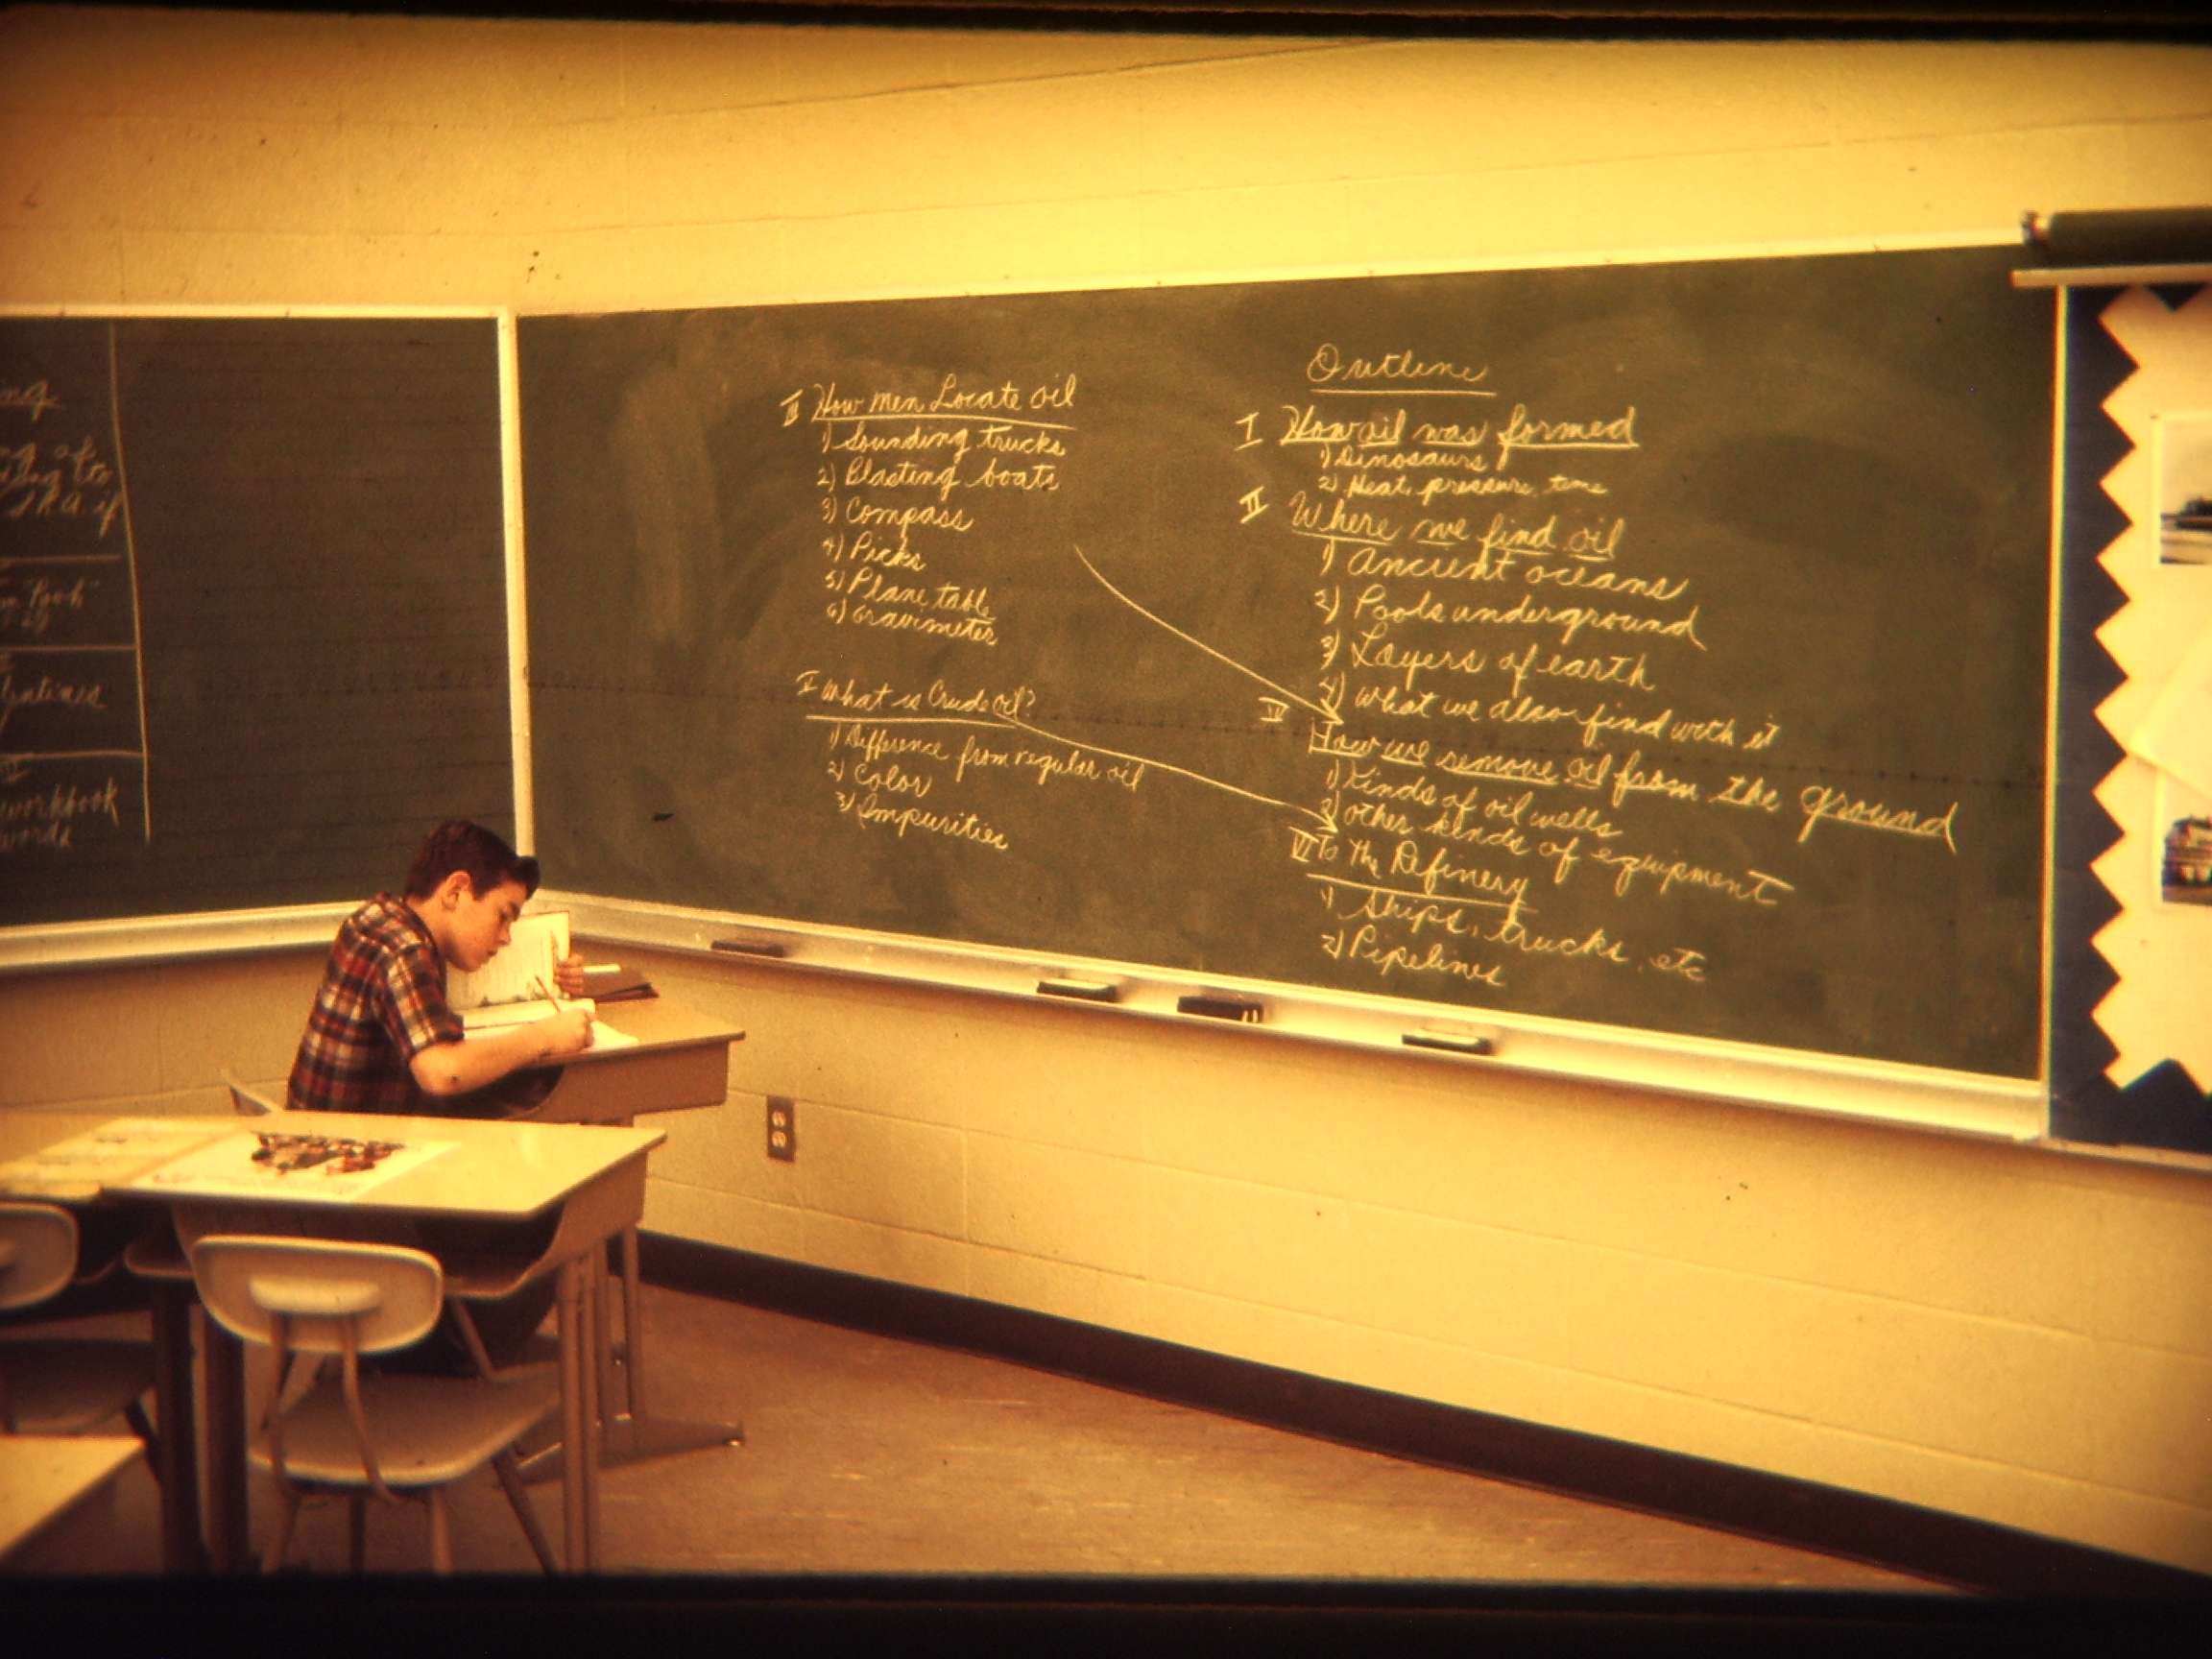 ng
ng of
to
S.R.A. if
workbook
words
III How men Locate oil
1) Sounding trucks
2) Blasting boats
3) Compass
4) Picks
5) Plane table
6) Gravimeter
I What is Crude oil?
1) Difference from regular oil
2) Color
3) Impurities
Outline
I How oil was formed
1) Dinosaurs
2) Heat, pressure, time
II Where we find oil
1) Ancient oceans
2) Pools underground
3) Layers of earth
4) What we also find with it
IV How we remove oil from the ground
1) Kinds of oil wells
2) other kinds of equipment
VI To the Refinery
1) Ships, trucks, etc
2) Pipelines